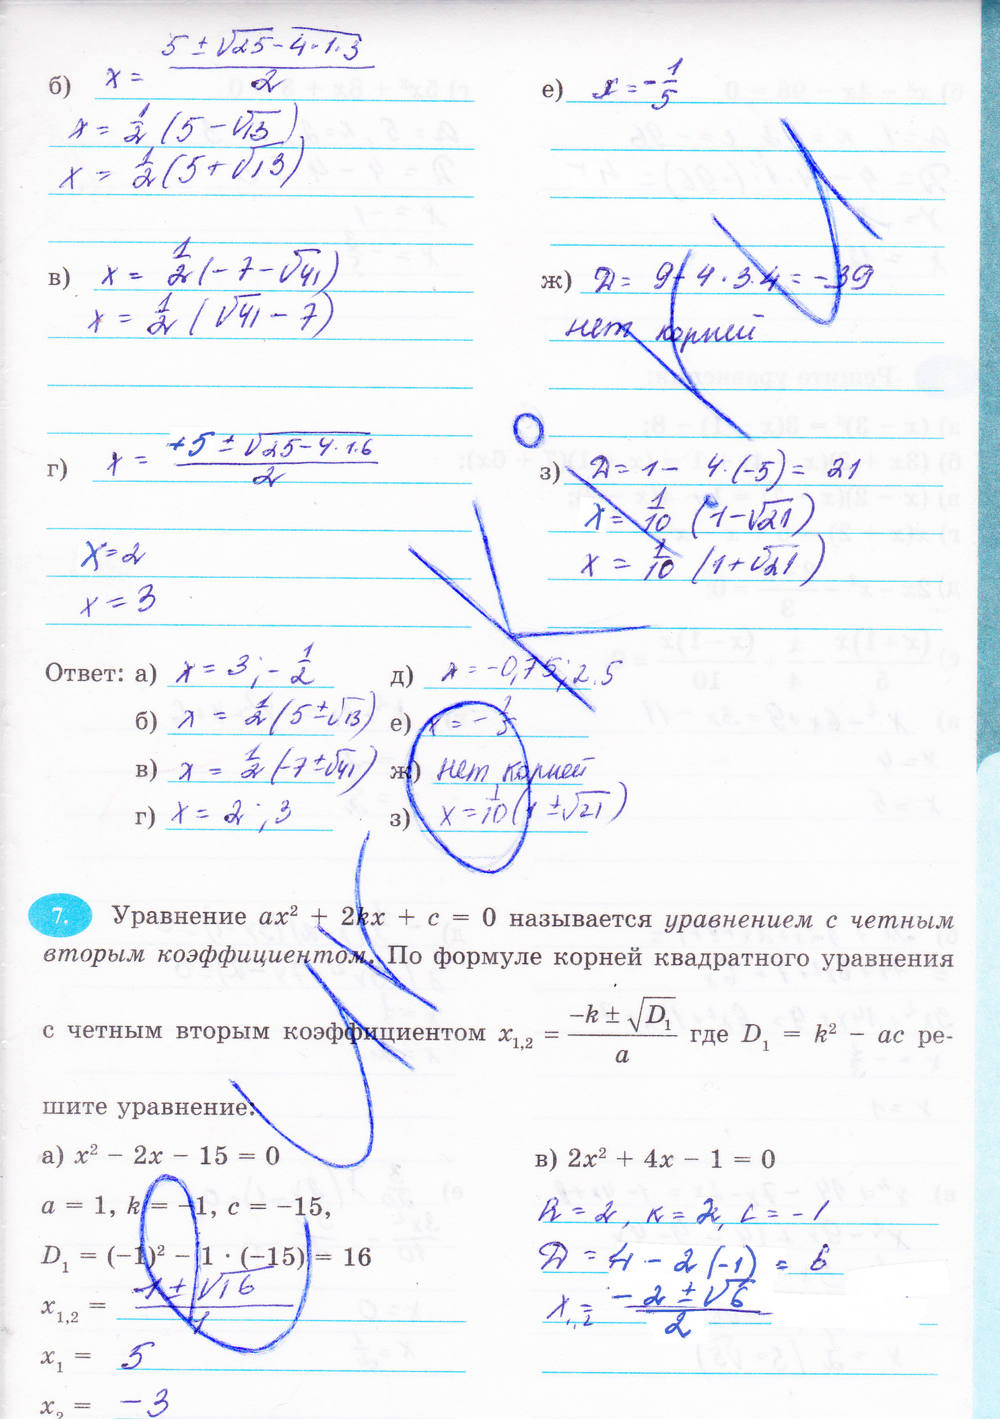 б) x = (5 ± √25 − 4·1·3) / 2
x = 1/2 (5 − √13)
x = 1/2 (5 + √13)
в) x = 1/2 (−7 − √41)
x = 1/2 (√41 − 7)
г) x = (+5 ± √25 − 4·1·6) / 2
x = 2
x = 3
е) x = −1/5
ж) D = 9 − 4·3·4 = −39
нет корней
з) D = 1 − 4·(−5) = 21
x = 1/10 (1 − √21)
x = 1/10 (1 + √21)
Ответ: а) x = 3; −1/2
б) x = 1/2 (5 ± √13)
в) x = 1/2 (−7 ± √41)
г) x = 2; 3
д) x = −0,75; 2.5
е) x = −1/5
ж) нет корней
з) x = 1/10 (1 ± √21)
7. Уравнение ax² + 2kx + c = 0 называется уравнением с четным
вторым коэффициентом. По формуле корней квадратного уравнения
с четным вторым коэффициентом x₁,₂ = (−k ± √D₁) / a где D₁ = k² − ac ре-
шите уравнение:
а) x² − 2x − 15 = 0
a = 1, k = −1, c = −15,
D₁ = (−1)² − 1 · (−15) = 16
x₁,₂ = (1 ± √16) / 1
x₁ = 5
x₂ = −3
в) 2x² + 4x − 1 = 0
a = 2, k = 2, c = −1
D = 4 − 2(−1) = 6
x₁,₂ = (−2 ± √6) / 2